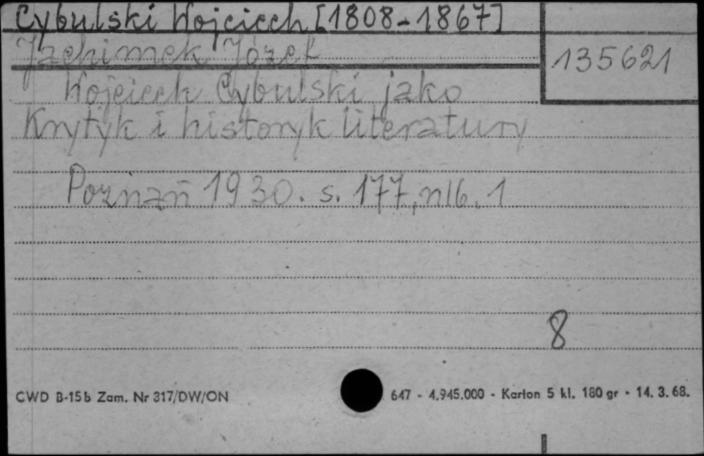 Cybulski Wojciech [1808-1867]
Jachimek Józef
135621
Wojciech Cybulski jako
Krytyk i historyk literatury
Poznań 1930. s. 177, nlb. 1
8
CWD B-15b Zam. Nr 317/DW/ON 647 - 4.945.000 - Karton 5 kl. 180 gr - 14. 3. 68.